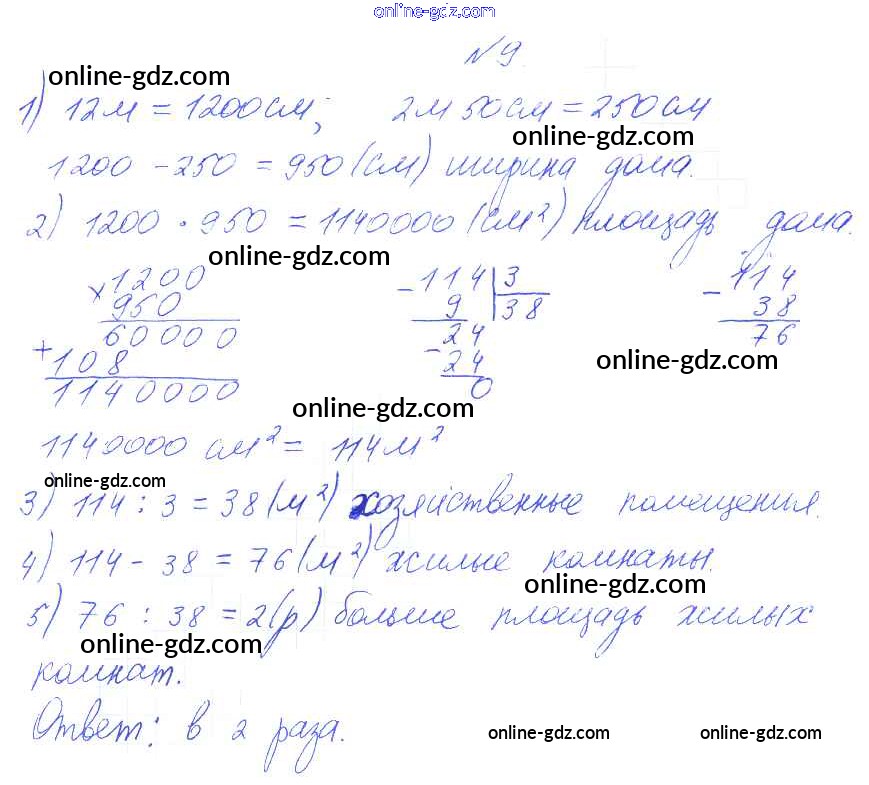 online-gdz.com
№9.
online-gdz.com
1) 12м = 1200см; 2м 50см = 250см
online-gdz.com
1200 - 250 = 950 (см) ширина дома.
2) 1200 · 950 = 1140000 (см²) площадь дома.
online-gdz.com
× 1200
950
60000
+ 108
1140000
- 114 | 3
9 | 38
24
- 24
0
- 114
38
76
online-gdz.com
online-gdz.com
1140000 см² = 114м²
online-gdz.com
3) 114 : 3 = 38 (м²) хозяйственные помещения.
4) 114 - 38 = 76 (м²) жилые комнаты.
online-gdz.com
5) 76 : 38 = 2 (р) больше площадь жилых
online-gdz.com
комнат.
Ответ: в 2 раза.
online-gdz.com online-gdz.com